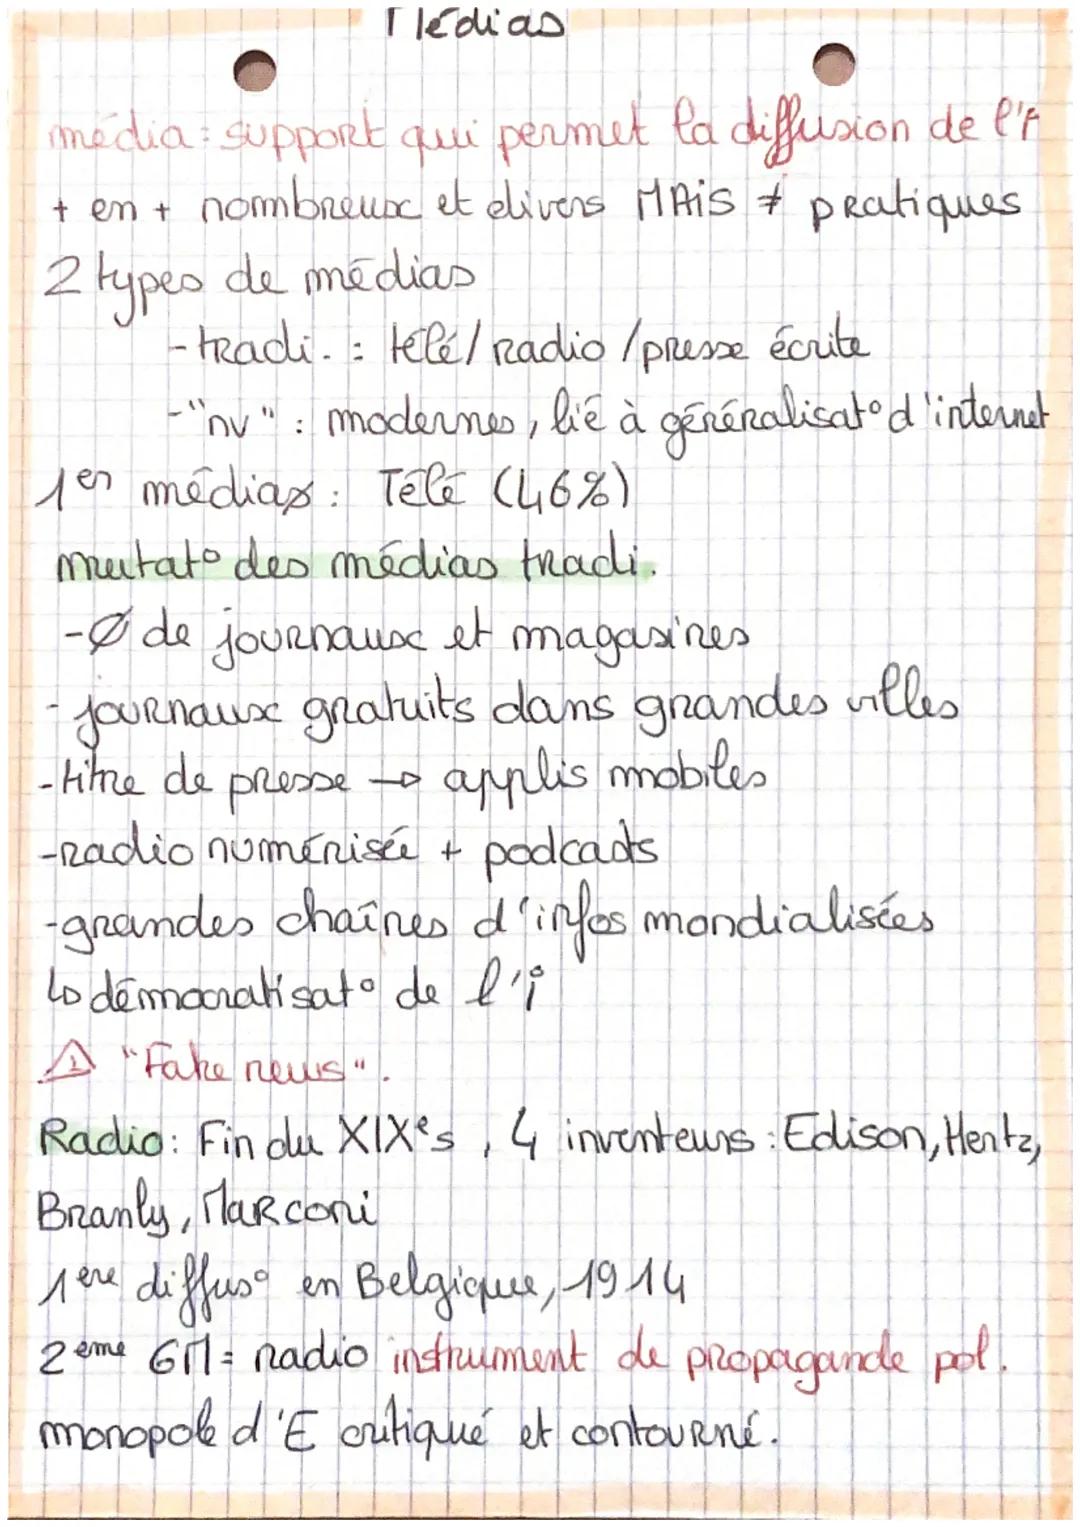 Médias
média : support qui permet la diffusion de l'i
+ en + nombreux et divers MAiS ≠ pratiques
2 types de médias
- tradi. : télé/ radio / presse écrite
- "nv" : modernes, lié à généralisat° d'internet
1er médias : Télé (46%)
mutat° des médias tradi.
- Ø de journaux et magasines
- journaux gratuits dans grandes villes
- titre de presse → applis mobiles
- radio numérisée + podcasts
- grandes chaînes d'infos mondialisées
↳ démocratisat° de l'i
⚠ "Fake news".
Radio : Fin du XIXes, 4 inventeurs : Edison, Hertz,
Branly, Marconi
1ere diffus° en Belgique, 1914
2eme GM = radio instrument de propagande pol.
monopole d'E critiqué et contourné.